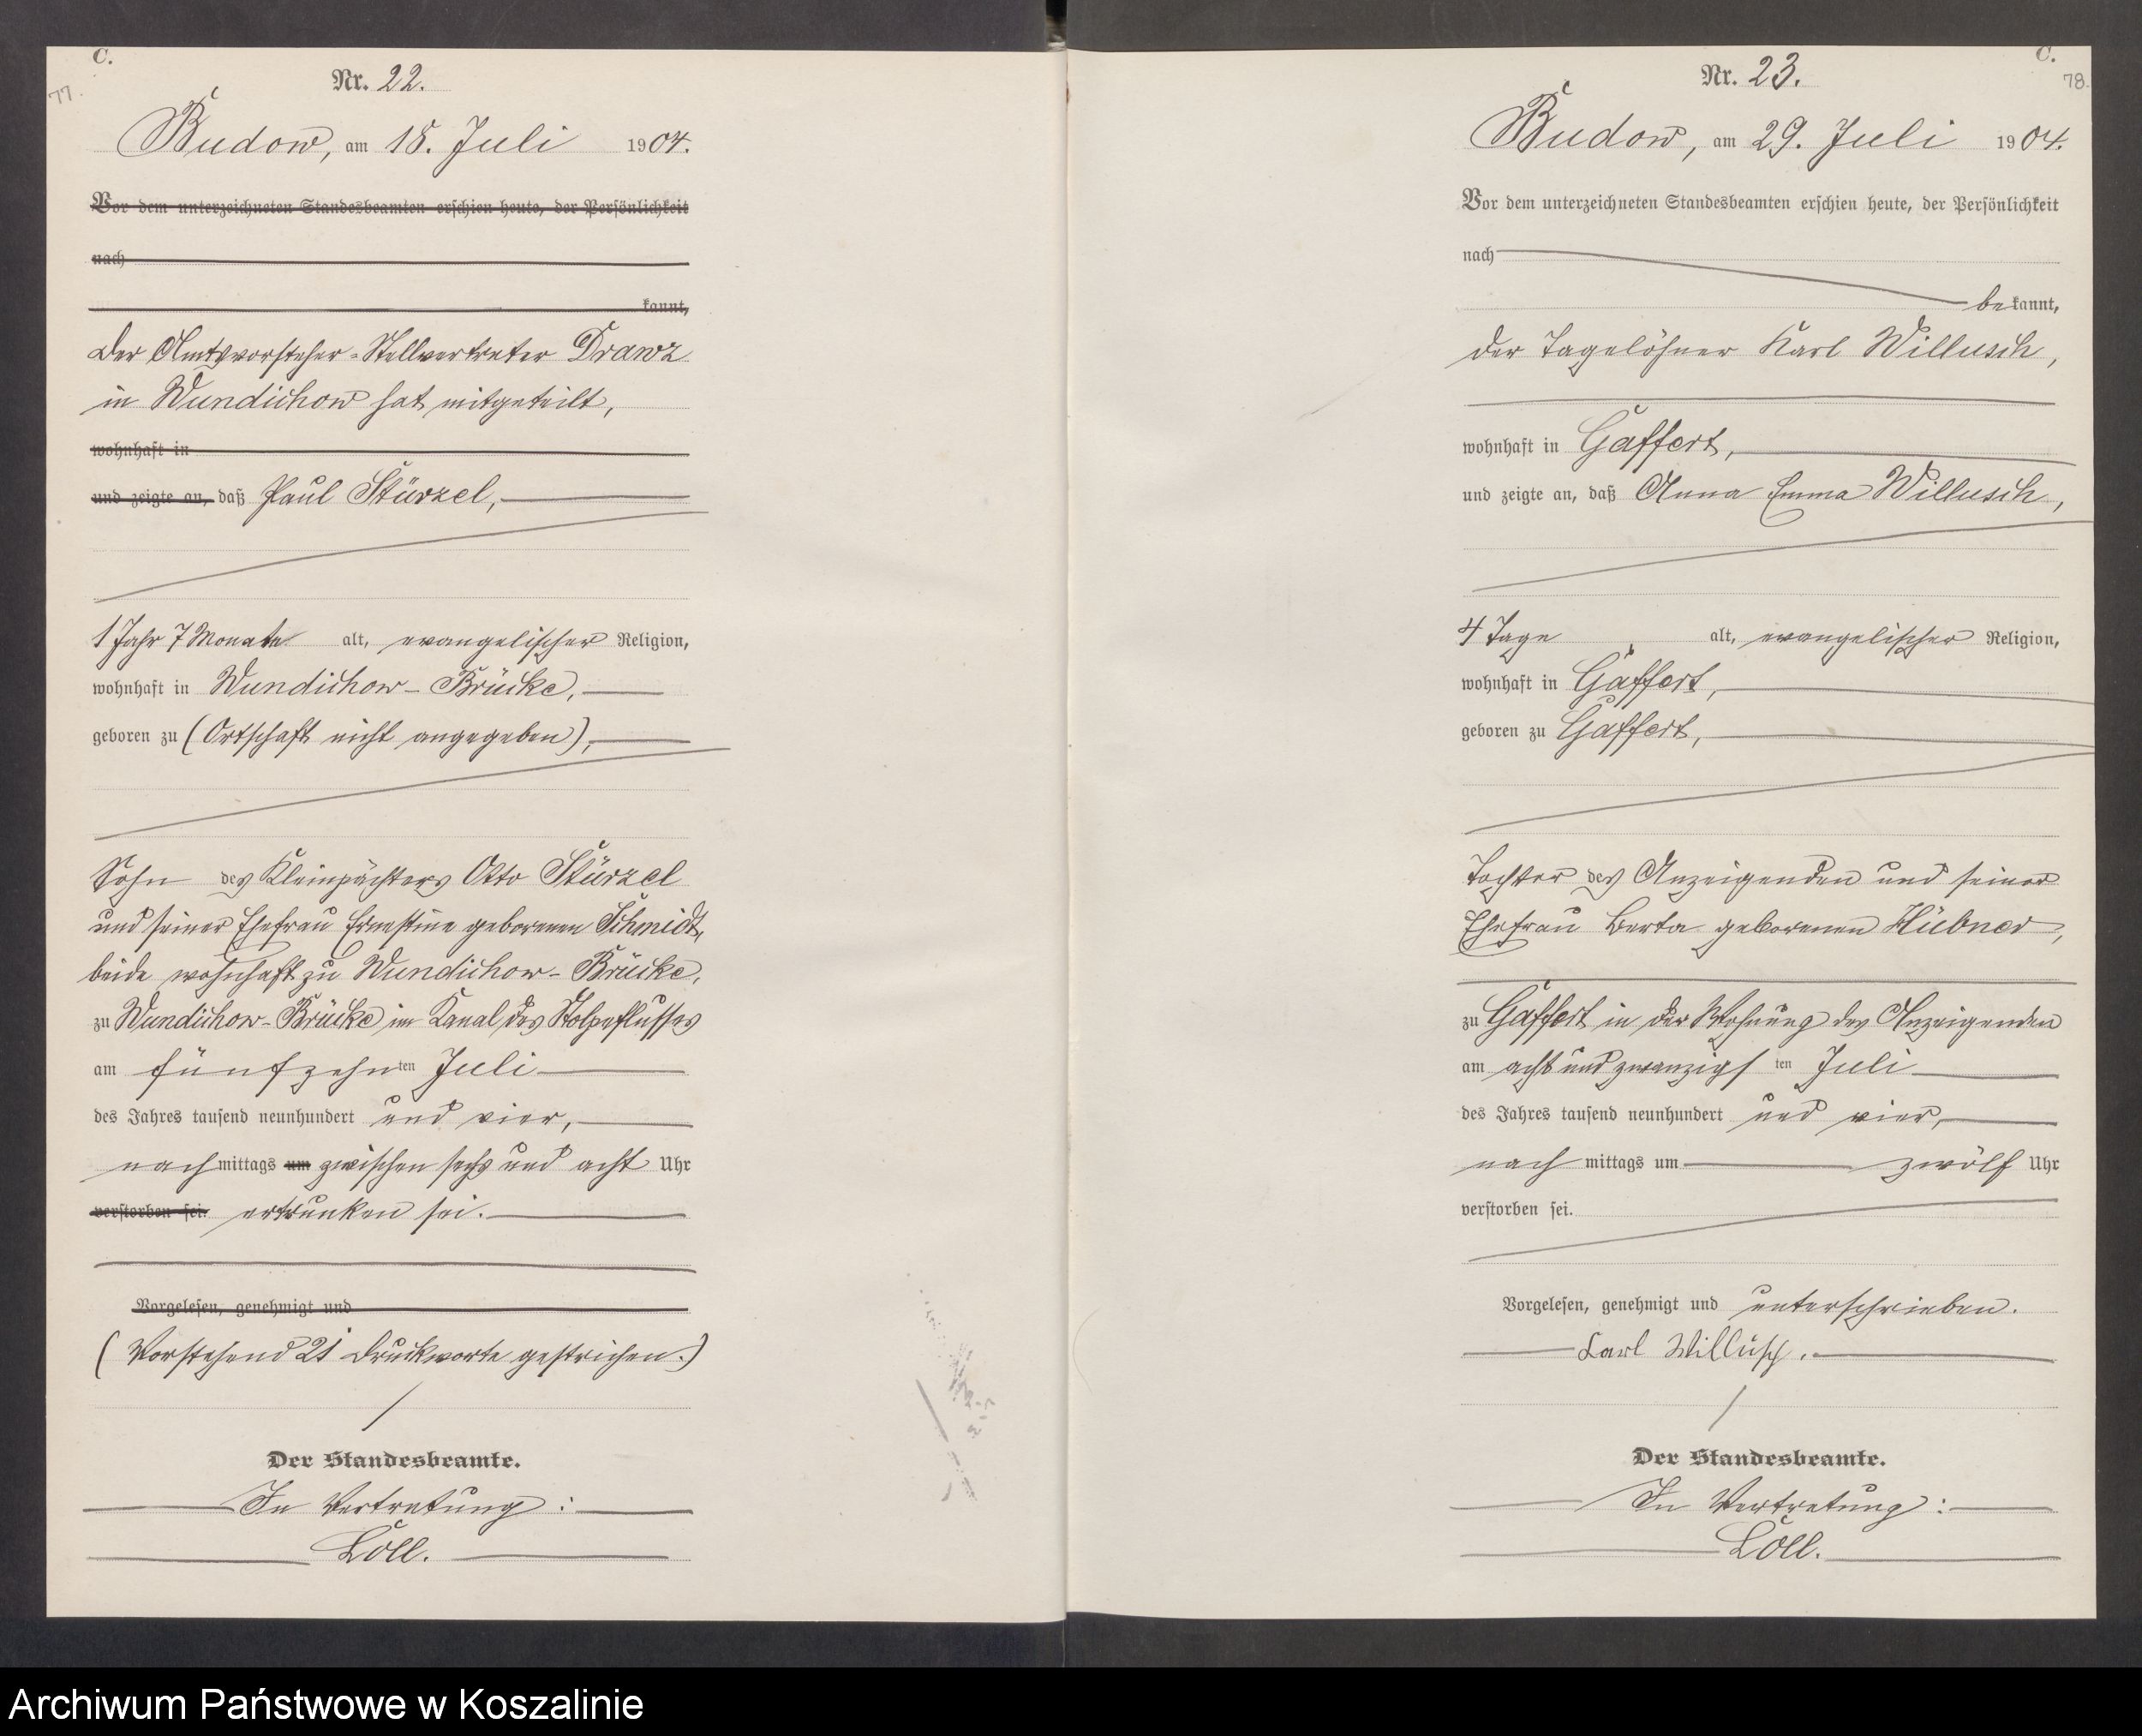 C.
77.
Nr. 22.
Budow, am 18. Juli 1904.
Vor dem unterzeichneten Standesbeamten erschien heute, der Persönlichkeit
nach
kannt,
Der Amtsvorsteher-Stellvertreter Drawz
in Wundichow hat mitgeteilt,
wohnhaft in
und zeigte an, daß Paul Stürzel,
1 Jahr 7 Monate alt, evangelischer Religion,
wohnhaft in Wundichow-Brücke,
geboren zu (Ortschaft nicht angegeben),
Sohn des Kleinpächters Otto Stürzel
und seiner Ehefrau Ernestine geborenen Schmidt,
beide wohnhaft zu Wundichow-Brücke,
zu Wundichow-Brücke im Kanal des Stolpeflusses
am fünfzehnten Juli
des Jahres tausend neunhundert und vier,
nachmittags um zwischen sechs und acht Uhr
verstorben sei. ertrunken sei.
Vorgelesen, genehmigt und
(Vorstehend 21 Druckworte gestrichen.)
Der Standesbeamte.
In Vertretung:
Löll.
C.
78.
Nr. 23.
Budow, am 29. Juli 1904.
Vor dem unterzeichneten Standesbeamten erschien heute, der Persönlichkeit
nach
bekannt,
der Tagelöhner Karl Willusch,
wohnhaft in Gaffert,
und zeigte an, daß Anna Emma Willusch,
4 Tage alt, evangelischer Religion,
wohnhaft in Gaffert,
geboren zu Gaffert,
Tochter des Anzeigenden und seiner
Ehefrau Berta geborenen Hübner,
zu Gaffert in der Wohnung des Anzeigenden
am acht und zwanzigsten Juli
des Jahres tausend neunhundert und vier,
nachmittags um zwölf Uhr
verstorben sei.
Vorgelesen, genehmigt und unterschrieben.
Carl Willusch.
Der Standesbeamte.
In Vertretung:
Löll.
Archiwum Państwowe w Koszalinie